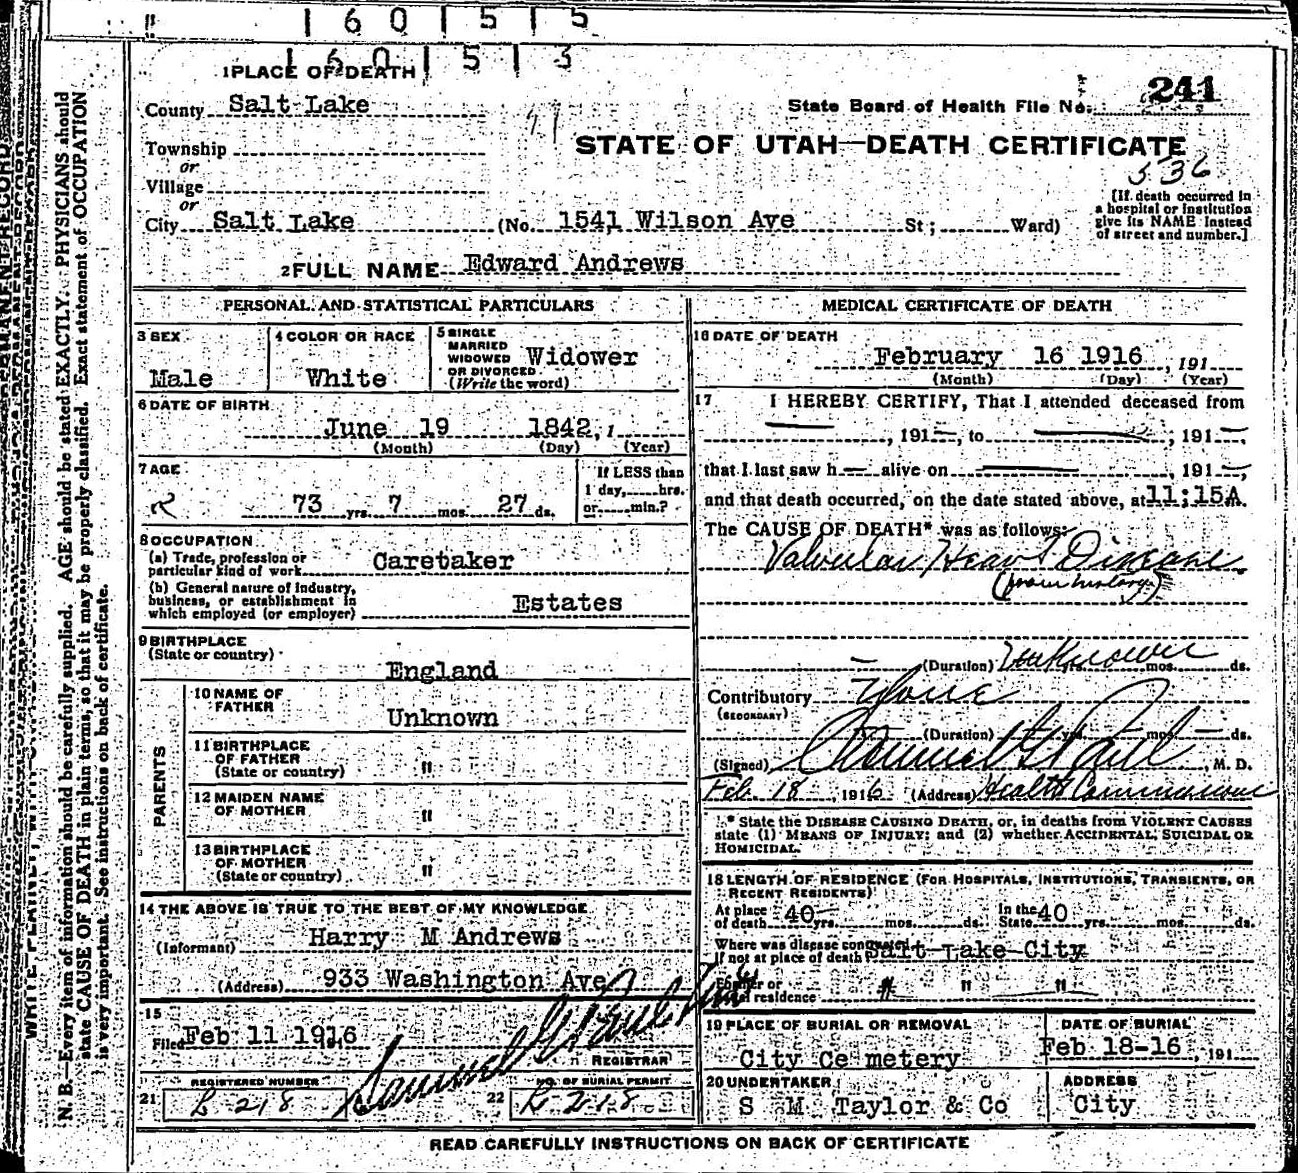 160155
160153
1 PLACE OF DEATH
County Salt Lake
State Board of Health File No. 241
Township
or
Village
or
STATE OF UTAH—DEATH CERTIFICATE
536
[If death occurred in
a hospital or institution
give its NAME instead
of street and number.]
City Salt Lake (No. 1541 Wilson Ave St; Ward)
2 FULL NAME Edward Andrews
PERSONAL AND STATISTICAL PARTICULARS
3 SEX
Male
4 COLOR OR RACE
White
5 SINGLE
MARRIED
WIDOWED
OR DIVORCED
(Write the word)
Widower
6 DATE OF BIRTH
June 19 1842, 1
(Month) (Day) (Year)
7 AGE
73 yrs. 7 mos. 27 ds.
If LESS than
1 day, hrs.
or min.?
8 OCCUPATION
(a) Trade, profession or
particular kind of work Caretaker
(b) General nature of industry,
business, or establishment in
which employed (or employer) Estates
9 BIRTHPLACE
(State or country)
England
PARENTS
10 NAME OF
FATHER
Unknown
11 BIRTHPLACE
OF FATHER
(State or country) "
12 MAIDEN NAME
OF MOTHER "
13 BIRTHPLACE
OF MOTHER
(State or country) "
14 THE ABOVE IS TRUE TO THE BEST OF MY KNOWLEDGE
(Informant) Harry M Andrews
(Address) 933 Washington Ave
15
Filed Feb 11 1916
REGISTRAR
REGISTERED NUMBER
21 L 218
NO. OF BURIAL PERMIT
22 L 218
MEDICAL CERTIFICATE OF DEATH
16 DATE OF DEATH
February 16 1916, 191
(Month) (Day) (Year)
17 I HEREBY CERTIFY, That I attended deceased from
—, 191—, to —, 191—,
that I last saw h— alive on —, 191—
and that death occurred, on the date stated above, at 11:15A.
The CAUSE OF DEATH* was as follows:
Valvular Heart Disease.
(from history)
(Duration) Unknown mos. ds.
Contributory None
(SECONDARY)
(Duration) yrs. mos. — ds.
(Signed) Samuel G Paul, M. D.
Feb. 18, 1916 (Address) Health Commissioner
* State the DISEASE CAUSING DEATH, or, in deaths from VIOLENT CAUSES
state (1) MEANS OF INJURY; and (2) whether ACCIDENTAL, SUICIDAL OR
HOMICIDAL.
18 LENGTH OF RESIDENCE (FOR HOSPITALS, INSTITUTIONS, TRANSIENTS, OR
RECENT RESIDENTS)
At place
of death 40 yrs. mos. ds. In the
State 40 yrs. mos. ds.
Where was disease contracted
if not at place of death Salt Lake City
Former or
usual residence " " "
19 PLACE OF BURIAL OR REMOVAL
City Ce metery
DATE OF BURIAL
Feb 18-16, 191
20 UNDERTAKER
S M Taylor & Co
ADDRESS
City
READ CAREFULLY INSTRUCTIONS ON BACK OF CERTIFICATE
N. B.—Every item of information should be carefully supplied. AGE should be stated EXACTLY. PHYSICIANS should
state CAUSE OF DEATH in plain terms, so that it may be properly classified. Exact statement of OCCUPATION
is very important. See instructions on back of certificate.